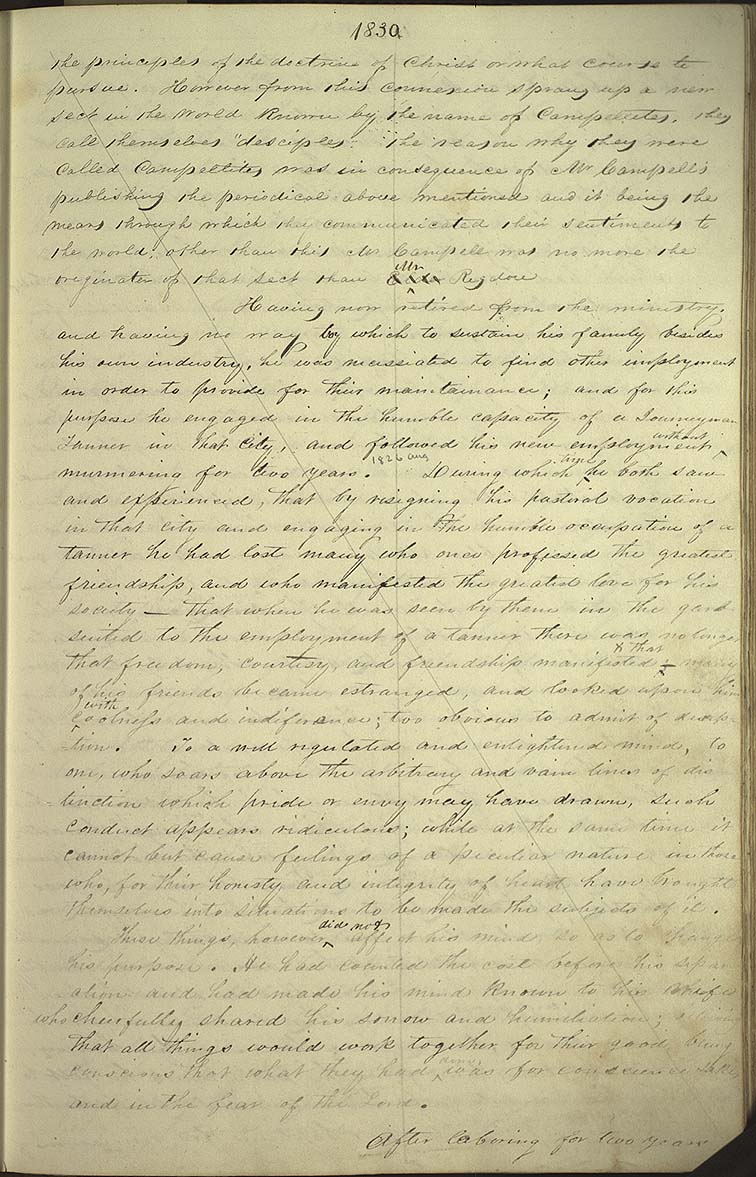 1830
the principles of the doctrine of Christ or what course to
pursue. However from this connexion sprang up a new
sect in the World known by the name of Campellites, they
call themselves "desciples". The reason why they were
called Campellites was in consequence of Mr Campell's
publishing the periodical above mentioned and it being the
means through which they communicated their sentiments to
the world; other than this Mr Campell was no more the
originator of that sect than Mr Rigdon
Having now retired from the ministry,
and having no way by which to sustain his family besides
his own industry, he was necessiated to find other employment
in order to provide for their maintainance; and for this
purpose he engaged in the humble capacity of a Journeyman
Tanner in that City, and followed his new employment without
murmering for two years. 1826 aug During which time he both saw
and experienced, that by resigning his pastoral vocation
in that city and engaging in the humble occupation of a
tanner he had lost many who once professed the greatest
friendship, and who manifested the greatest love for his
society — that when he was seen by them in the garb
suited to the employment of a tanner there was no longer
that freedom, courtesy and friendship manifested — x that many
of his friends became estranged, and looked upon him
with coolness and indiference; too obvious to admit of decep
-tion. To a well regulated and enlightened mind, to
one, who soars above the arbitrary and vain lines of dis
-tinction which pride or envy may have drawn, such
conduct appears ridiculous; while at the same time it
cannot but cause feelings of a peculiar nature in those
who, for their honesty and integrity of heart have brought
themselves into situations to be made the subjects of it.
These things, however did not affect his mind, so as to change
his purpose. He had counted the cost before his sepa
-ration and had made his mind known to his wife
who cheerfully shared his sorrow and humiliation;
that all things would work together for their good being
conscious that what they had done was for conscience sake
and in the fear of the Lord.
After laboring for two years